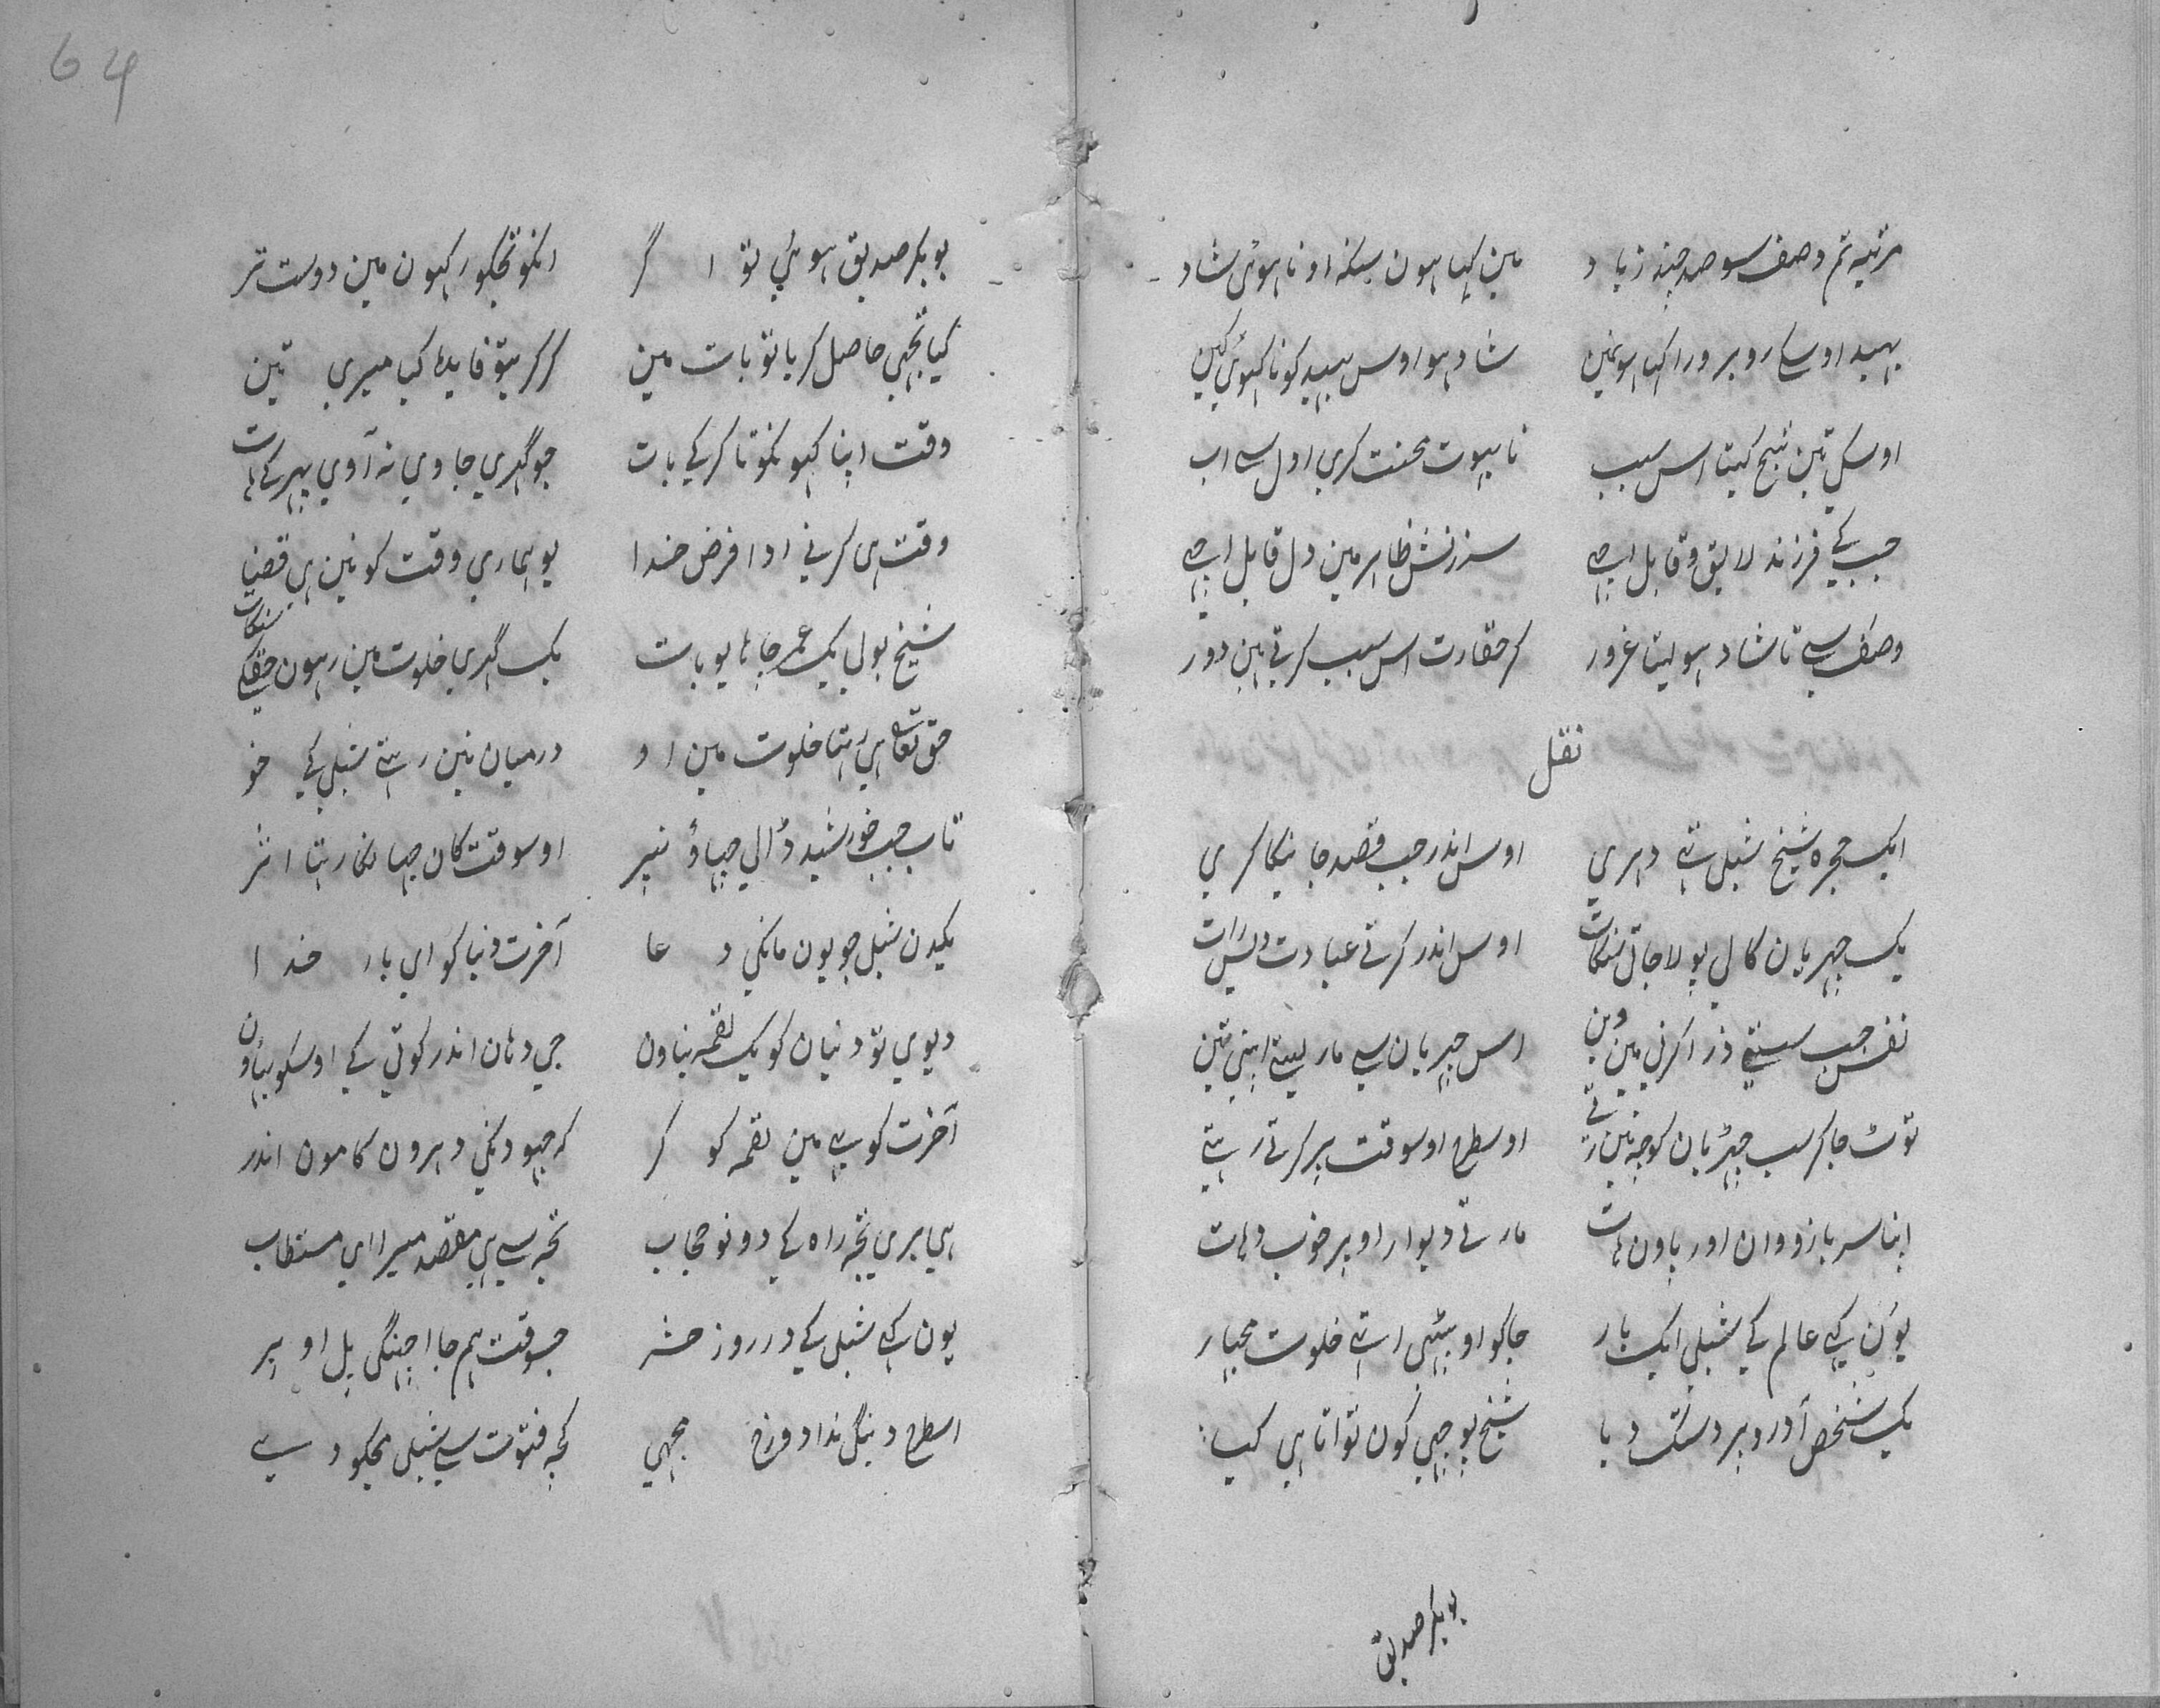 مرتبہ تم وصف سو صد چند زیاد	مین کہا ہون سیکہ او نا ہوئی شاد
بہید اوسکے روبرو را کہا سو نمین	شاد ہوا اوس بہید کو نا کہوئی کہین
اوسکی تین قبح کیتا اس سبب	نا بہوت محنت کری اول سے اب
جب کے فرزند لایق و قابل اچہے	سرزنش ظاہر مین دل قابل اچہے
وصف سے تا شاد ہو لیتا غرور	کر حقارت اس سبب کرتے ہین دور
نقل
ایک حجرہ شیخ شبلی تہے دہری	اوس اندر جب قصد جانیکا کری
یک چہڑیان کا لی پولا جاتی سنگات	اوس اندر کرتے عبادت دیس رات
نفس جب سستے ذرا کرنی مین وین	اس چہڑیان سے مار لیتے اپنی تین
توٹ جا کر سب چہڑیان کوچہ نین رہتے	اوسطرح اوسوقت پر کرتے رہتے
اپنا سر بازووان اور پاون ہات	مارتے دیوار اوپر خوب دہات
یون کہے عالم کے شبلی ایک بار	جاکو او بیٹہی اتہے خلوت مجہار
یک شخص آ در وپر دستک دیا	شیخ پوچہی کون تو اتا ہی کیا
بوبکر صدیق
64
بوبکر صدیق ہوئی تو اگر	انکو تجکور کہون مین دوست تر
کیا تجہی حاصل کریا تو بات مین	کر کریتو فایدہ کیا میری تین
وقت اپنا کہو نکو تا کر کے بات	جو گہری جاوی نہ آوی پہر کے ہات
وقت ہی کرنے ادا فرض خدا	یو ہماری وقت کو نین ہی قضا
شیخ بولی یک عمر چاہا یو بات	یک گہری خلوت مین رہون حقکے سنگات
حق تعالی ہی رہتا خلوت مین او	درمیان نین رہتے شبلی کے خو
تاب جب خورشید ڈالی چہاؤ پر	اوسوقت کان چہانکا رہتا اثر
یکدن شبلی جو یون مانگی دعا	آخرت دنیا کو ای بار خدا
دیوی تو دنیان کو یک لقمہ بناون	جی دہان اندر کوتی کے اوسکو بہاون
آخرت کو بہے مین لقمہ کو کر	کہ جہودنکی دہرون کامون اندر
ہی میری تجہ راہ کے دونو حجاب	تجہ سے ہی مقصد میرا ای مستطاب
یون کہے شبلی کے در روز حشر	جسوقت ہم جا اچہنگی پل اوپر
اسطرح دینگی ندا دوزخ مجہی	کچہ فتوت سے شبلی مجکو دے